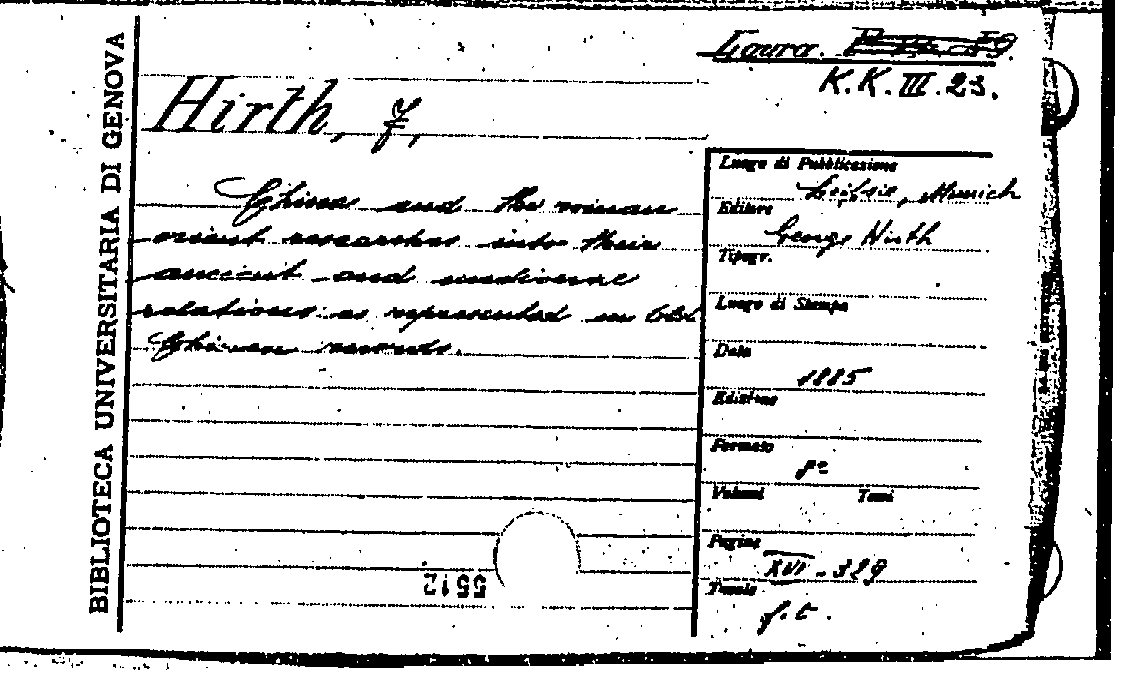 BIBLIOTECA UNIVERSITARIA DI GENOVA
Gova.
K.K.III.23.
Hirth, F,
China and the roman
orient researches into their
ancient and mediaeval
relations as represented in old
Chinese records.
Luogo di Pubblicazione
Leipsic, Munich
Editore
George Hirth
Tipogr.
Luogo di Stampa
Data
1885
Edizione
Formato
8°
Volumi Tomi
Pagine
XVI-329
Tavole
f.t.
5512